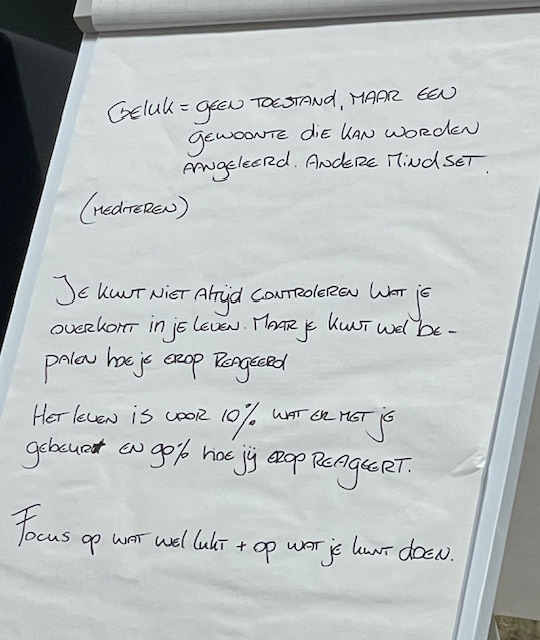 Geluk = geen toestand, maar een
gewoonte die kan worden
aangeleerd. Andere mindset.
(mediteren)
Je kunt niet altijd controleren wat je
overkomt in je leven. Maar je kunt wel be-
palen hoe je erop reageerd
Het leven is voor 10% wat er met je
gebeurt en 90% hoe jij erop reageert.
Focus op wat wel lukt + op wat je kunt doen.